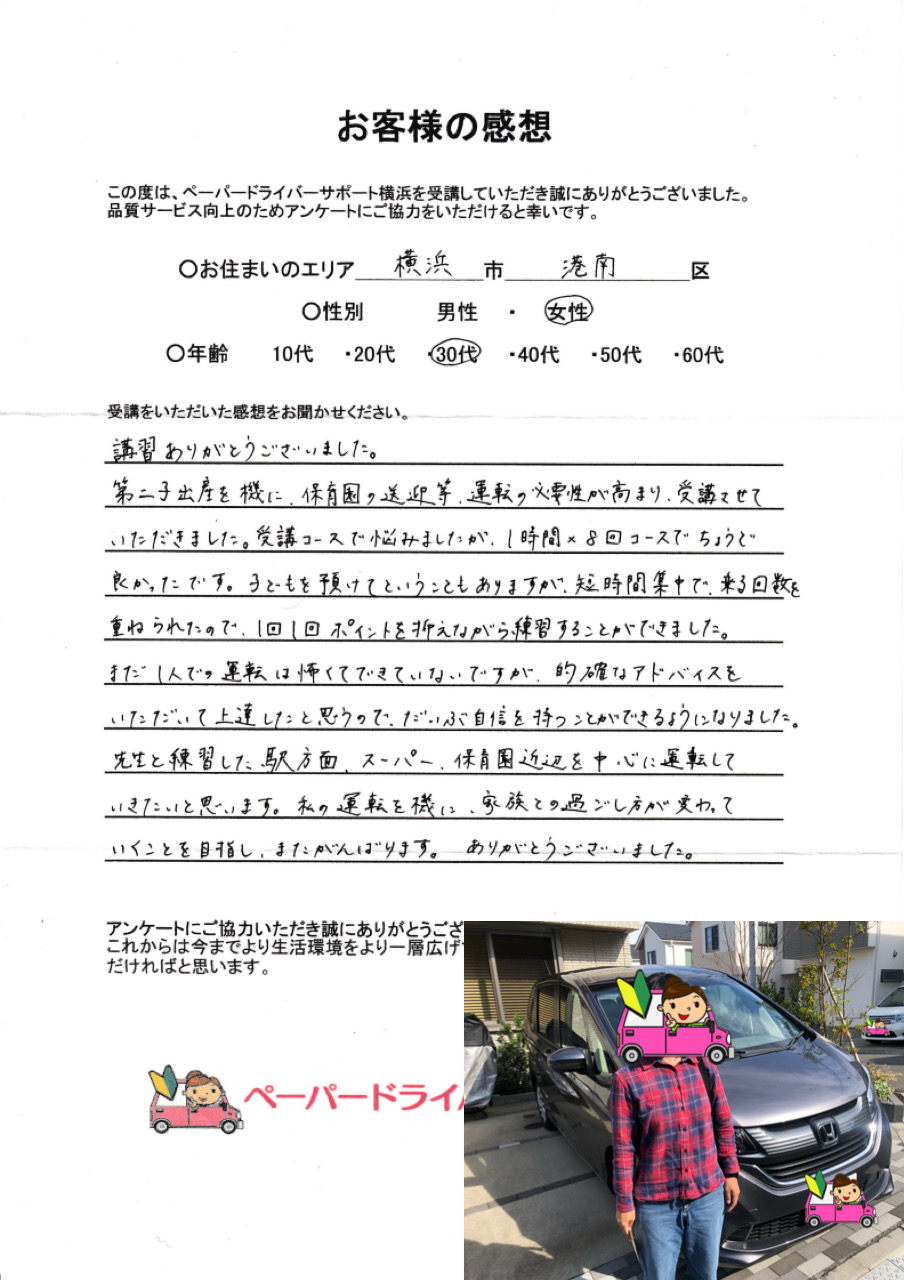 お客様の感想
この度は、ペーパードライバーサポート横浜を受講していただき誠にありがとうございました。
品質サービス向上のためアンケートにご協力をいただけると幸いです。
〇お住まいのエリア 横浜 市 港南 区
〇性別 男性 ・ 女性
〇年齢 10代 ・20代 ・30代 ・40代 ・50代 ・60代
受講をいただいた感想をお聞かせください。
講習ありがとうございました。
第二子出産を機に、保育園の送迎等、運転の必要性が高まり、受講させて
いただきました。受講コースで悩みましたが、1時間×8回コースでちょうど
良かったです。子どもを預けてということもありますが、短時間集中で、乗る回数を
重ねられたので、1回1回ポイントを抑えながら練習することができました。
まだ1人での運転は怖くてできていないですが、的確なアドバイスを
いただいて上達したと思うので、だいぶ自信を持つことができるようになりました。
先生と練習した駅方面、スーパー、保育園近辺を中心に運転して
いきたいと思います。私の運転を機に、家族との過ごし方が変わって
いくことを目指し、またがんばります。 ありがとうございました。
アンケートにご協力いただき誠にありがとうござ
これからは今までより生活環境をより一層広げ
だければと思います。
ペーパードライ